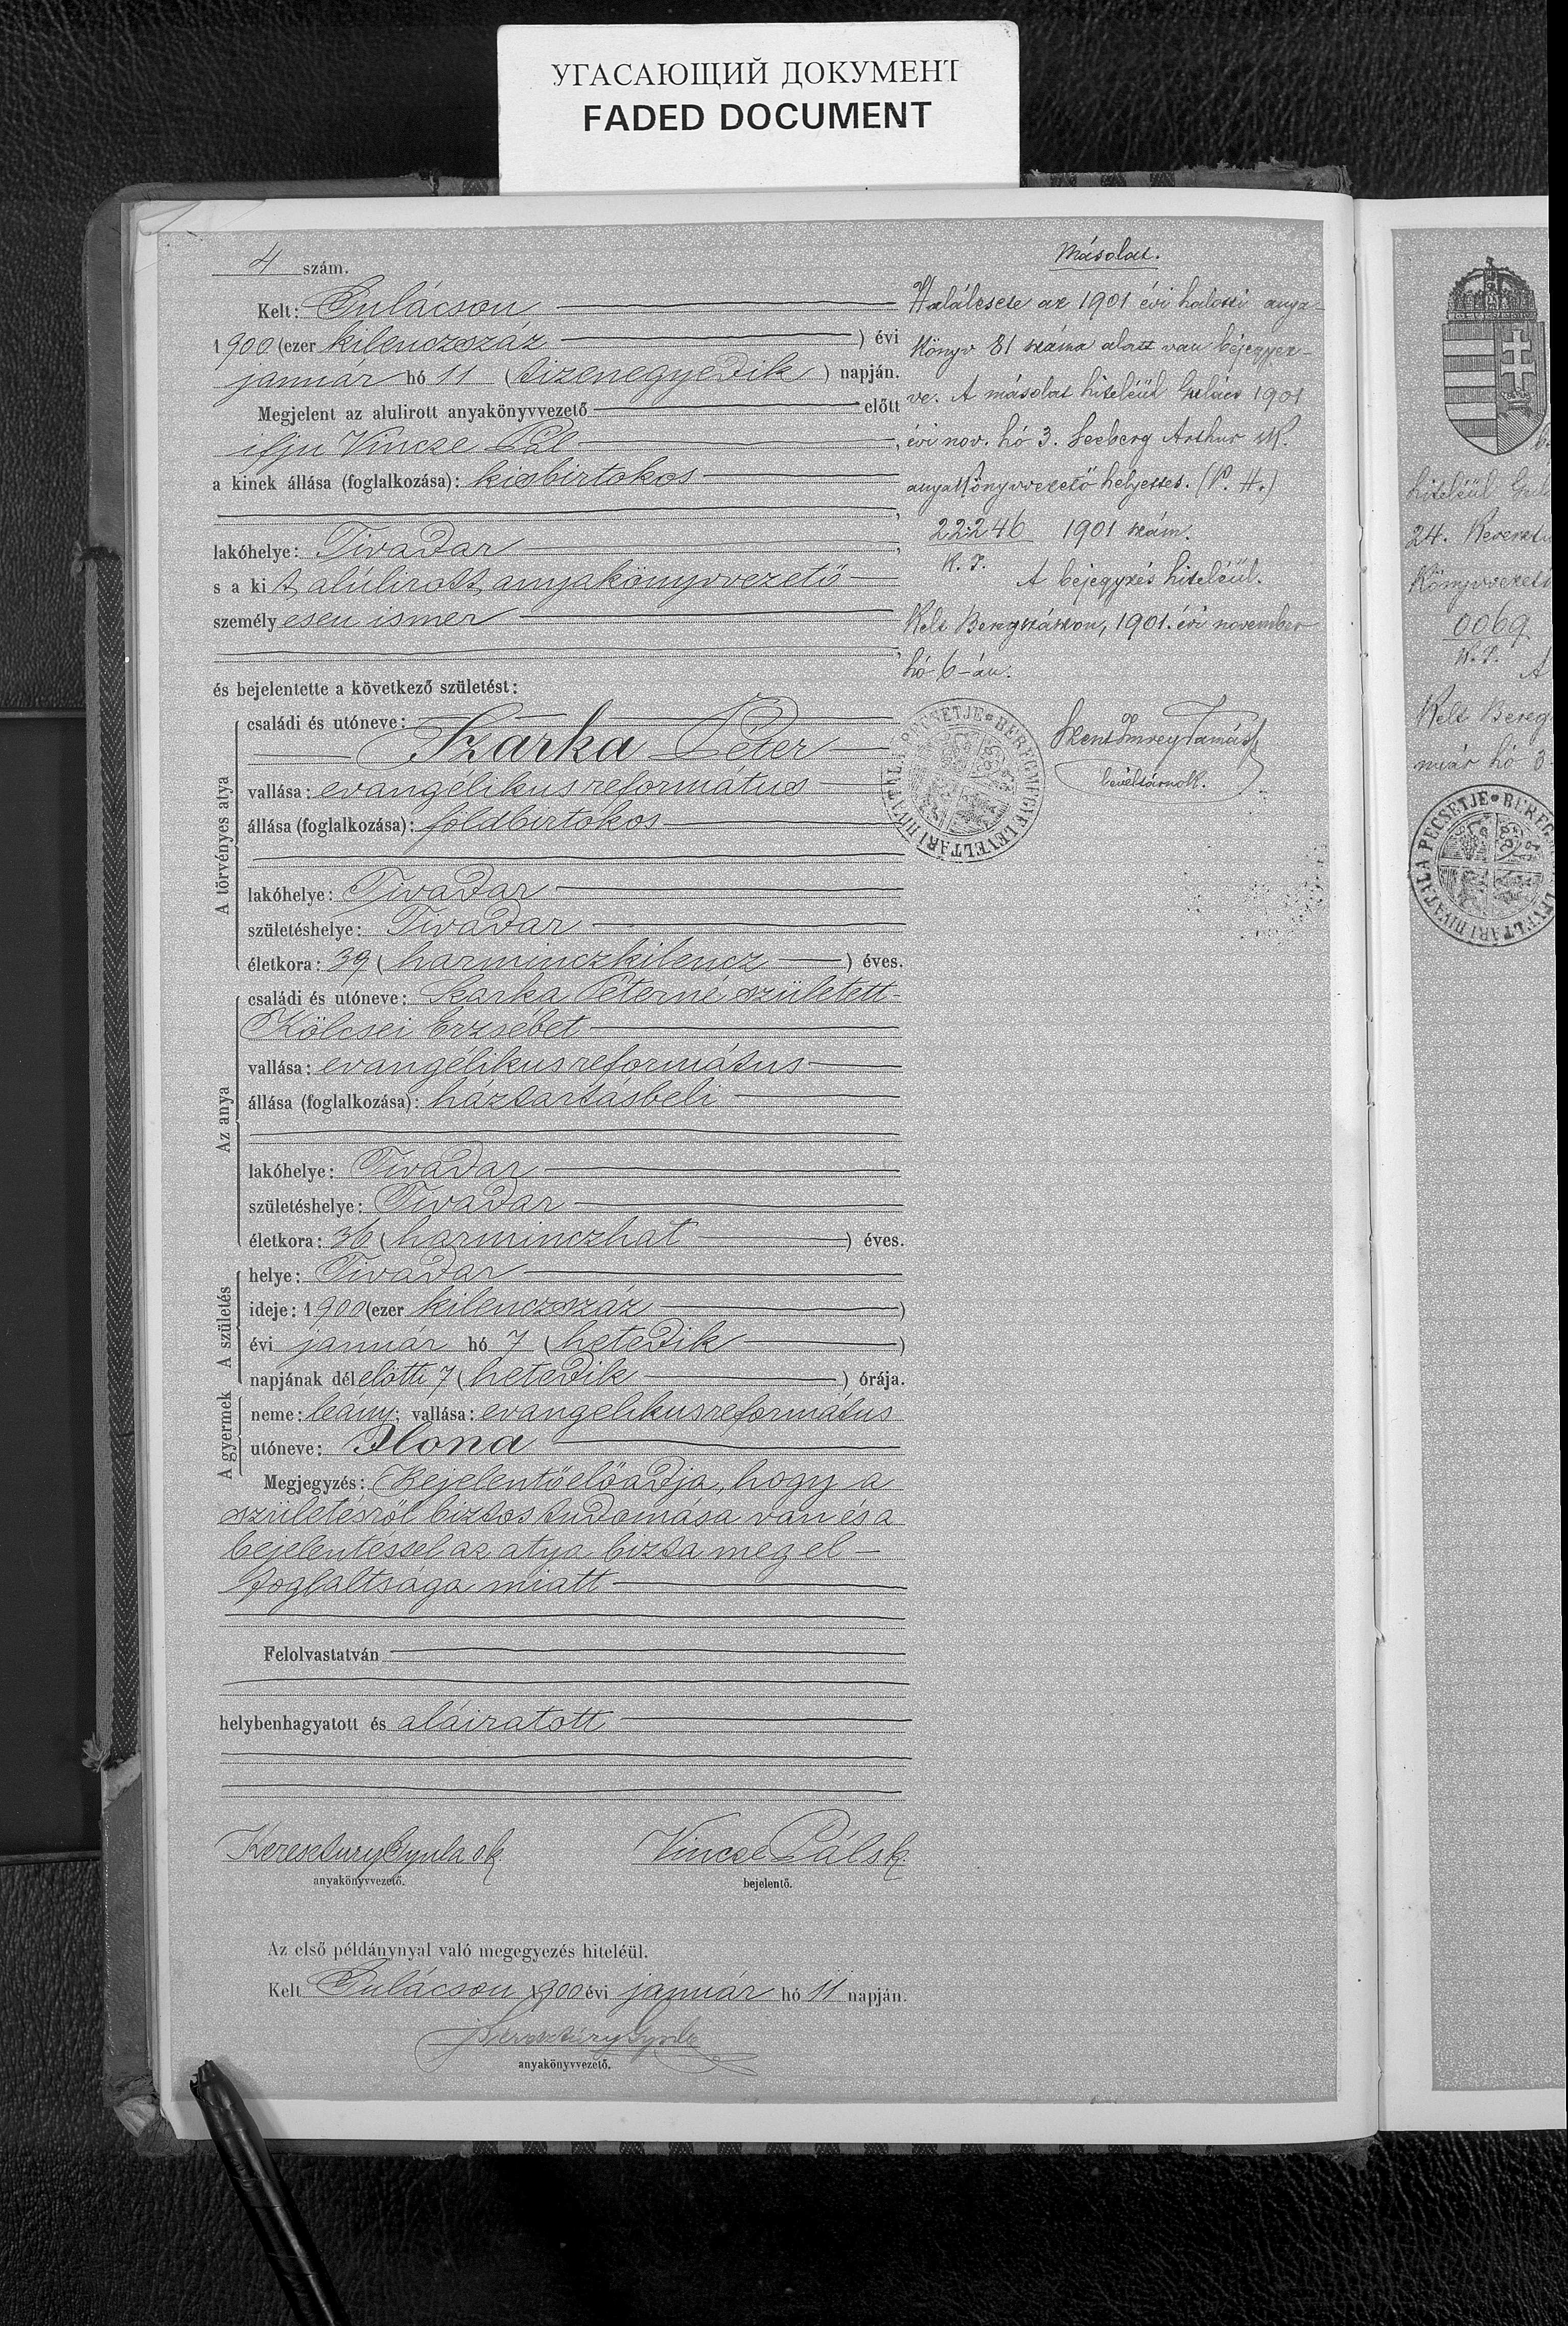 УГАСАЮЩИЙ ДОКУМЕНТ
FADED DOCUMENT
4 szám.
Kelt: Gulácson
1900 (ezer kilenczszáz ) évi
január hó 11 (tizenegyedik) napján.
Megjelent az alulirott anyakönyvvezető előtt
ifju Vincze Pál,
a kinek állása (foglalkozása): kisbirtokos
,
lakóhelye: Tivadar,
s a kit alúlirott anyakönyvvezető
személyesen ismer
,
és bejelentette a következő születést:
A törvényes atya
családi és utóneve:
Szarka Péter
vallása: evangélikus református
állása (foglalkozása): földbirtokos
lakóhelye: Tivadar
születéshelye: Tivadar
életkora: 39 (harminczkilencz) éves.
Az anya
családi és utóneve: Szarka Péterné született
Kölcsei Erzsébet
vallása: evangélikus református
állása (foglalkozása): háztartásbeli
lakóhelye: Tivadar
születéshelye: Tivadar
életkora: 36 (harminczhat) éves.
A születés
helye: Tivadar
ideje: 1900 (ezer kilenczszáz)
évi január hó 7 (hetedik)
napjának délelőtti 7 (hetedik) órája.
A gyermek
neme: leány; vallása: evangelikus református
utóneve: Ilona
Megjegyzés: Bejelentő előadja, hogy a
születésről biztos tudomása van és a
bejelentéssel az atya bizta meg el-
foglaltsága miatt
Felolvastatván
helybenhagyatott és aláiratott
Keresztury Gyula sk
anyakönyvvezető.
Vincze Pál sk.
bejelentő.
Az első példánynyal való megegyezés hiteléül.
Kelt Gulácson 1900 évi január hó 11 napján.
Keresztury Gyula
anyakönyvvezető.
Másolat.
Halálesete az 1901 évi halotti anya-
könyv 81 száma alatt van bejegyez-
ve. A másolat hiteléül Gulács 1901
évi nov. hó 3. Seeberg Arthur sk.
anyakönyvvezető helyettes. (P. H.)
22246 1901 szám.
K. I.
A bejegyzés hiteléül.
Kelt Beregszászon, 1901. évi november
hó 6-án.
BEREGMEGYE LEVÉLTÁRI HIVATALA PECSÉTJE
Szent Imrey Tamás
levéltárnok.
hiteléül Gul
24. Kereszt
könyvvezető
0069
K. I.
A
Kelt Bereg
hó 3
BEREG LEVÉLTÁRI HIVATALA PECSÉTJE